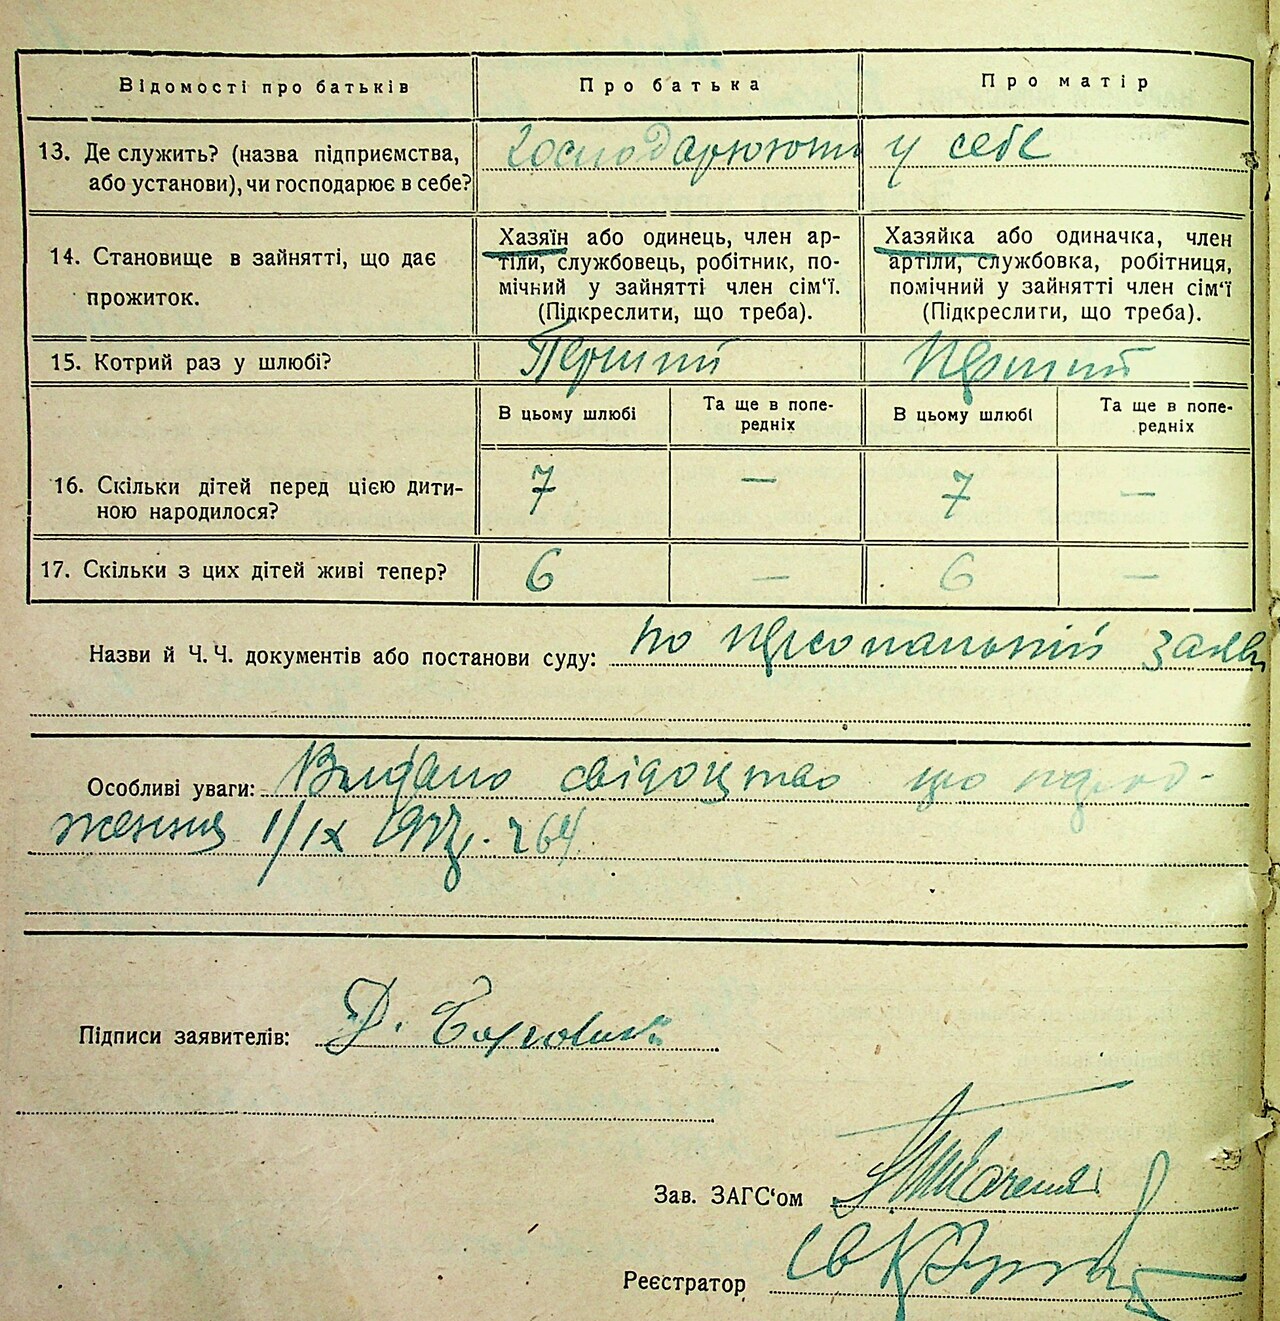 Відомості про батьків Про батька Про матір
13. Де служить? (назва підприємства, Господарюють у себе
або установи), чи господарює в себе?
14. Становище в зайнятті, що дає
прожиток.
Хазяїн або одинець, член ар-
тіли, службовець, робітник, по-
мічний у зайнятті член сім‘ї.
(Підкреслити, що треба).
Хазяйка або одиначка, член
артіли, службовка, робітниця,
помічний у зайнятті член сім‘ї
(Підкреслити, що треба).
15. Котрий раз у шлюбі? Перший Перший
В цьому шлюбі Та ще в попе-
редніх
В цьому шлюбі Та ще в попе-
редніх
16. Скільки дітей перед цією дити-
ною народилося?
7 — 7 —
17. Скільки з цих дітей живі тепер? 6 — 6 —
Назви й Ч. Ч. документів або постанови суду: по персональній заяві
Особливі уваги: Видано свідоцтво
ження 1/IX 264
Підписи заявителів: Д.
Зав. ЗАГС‘ом
Реєстратор